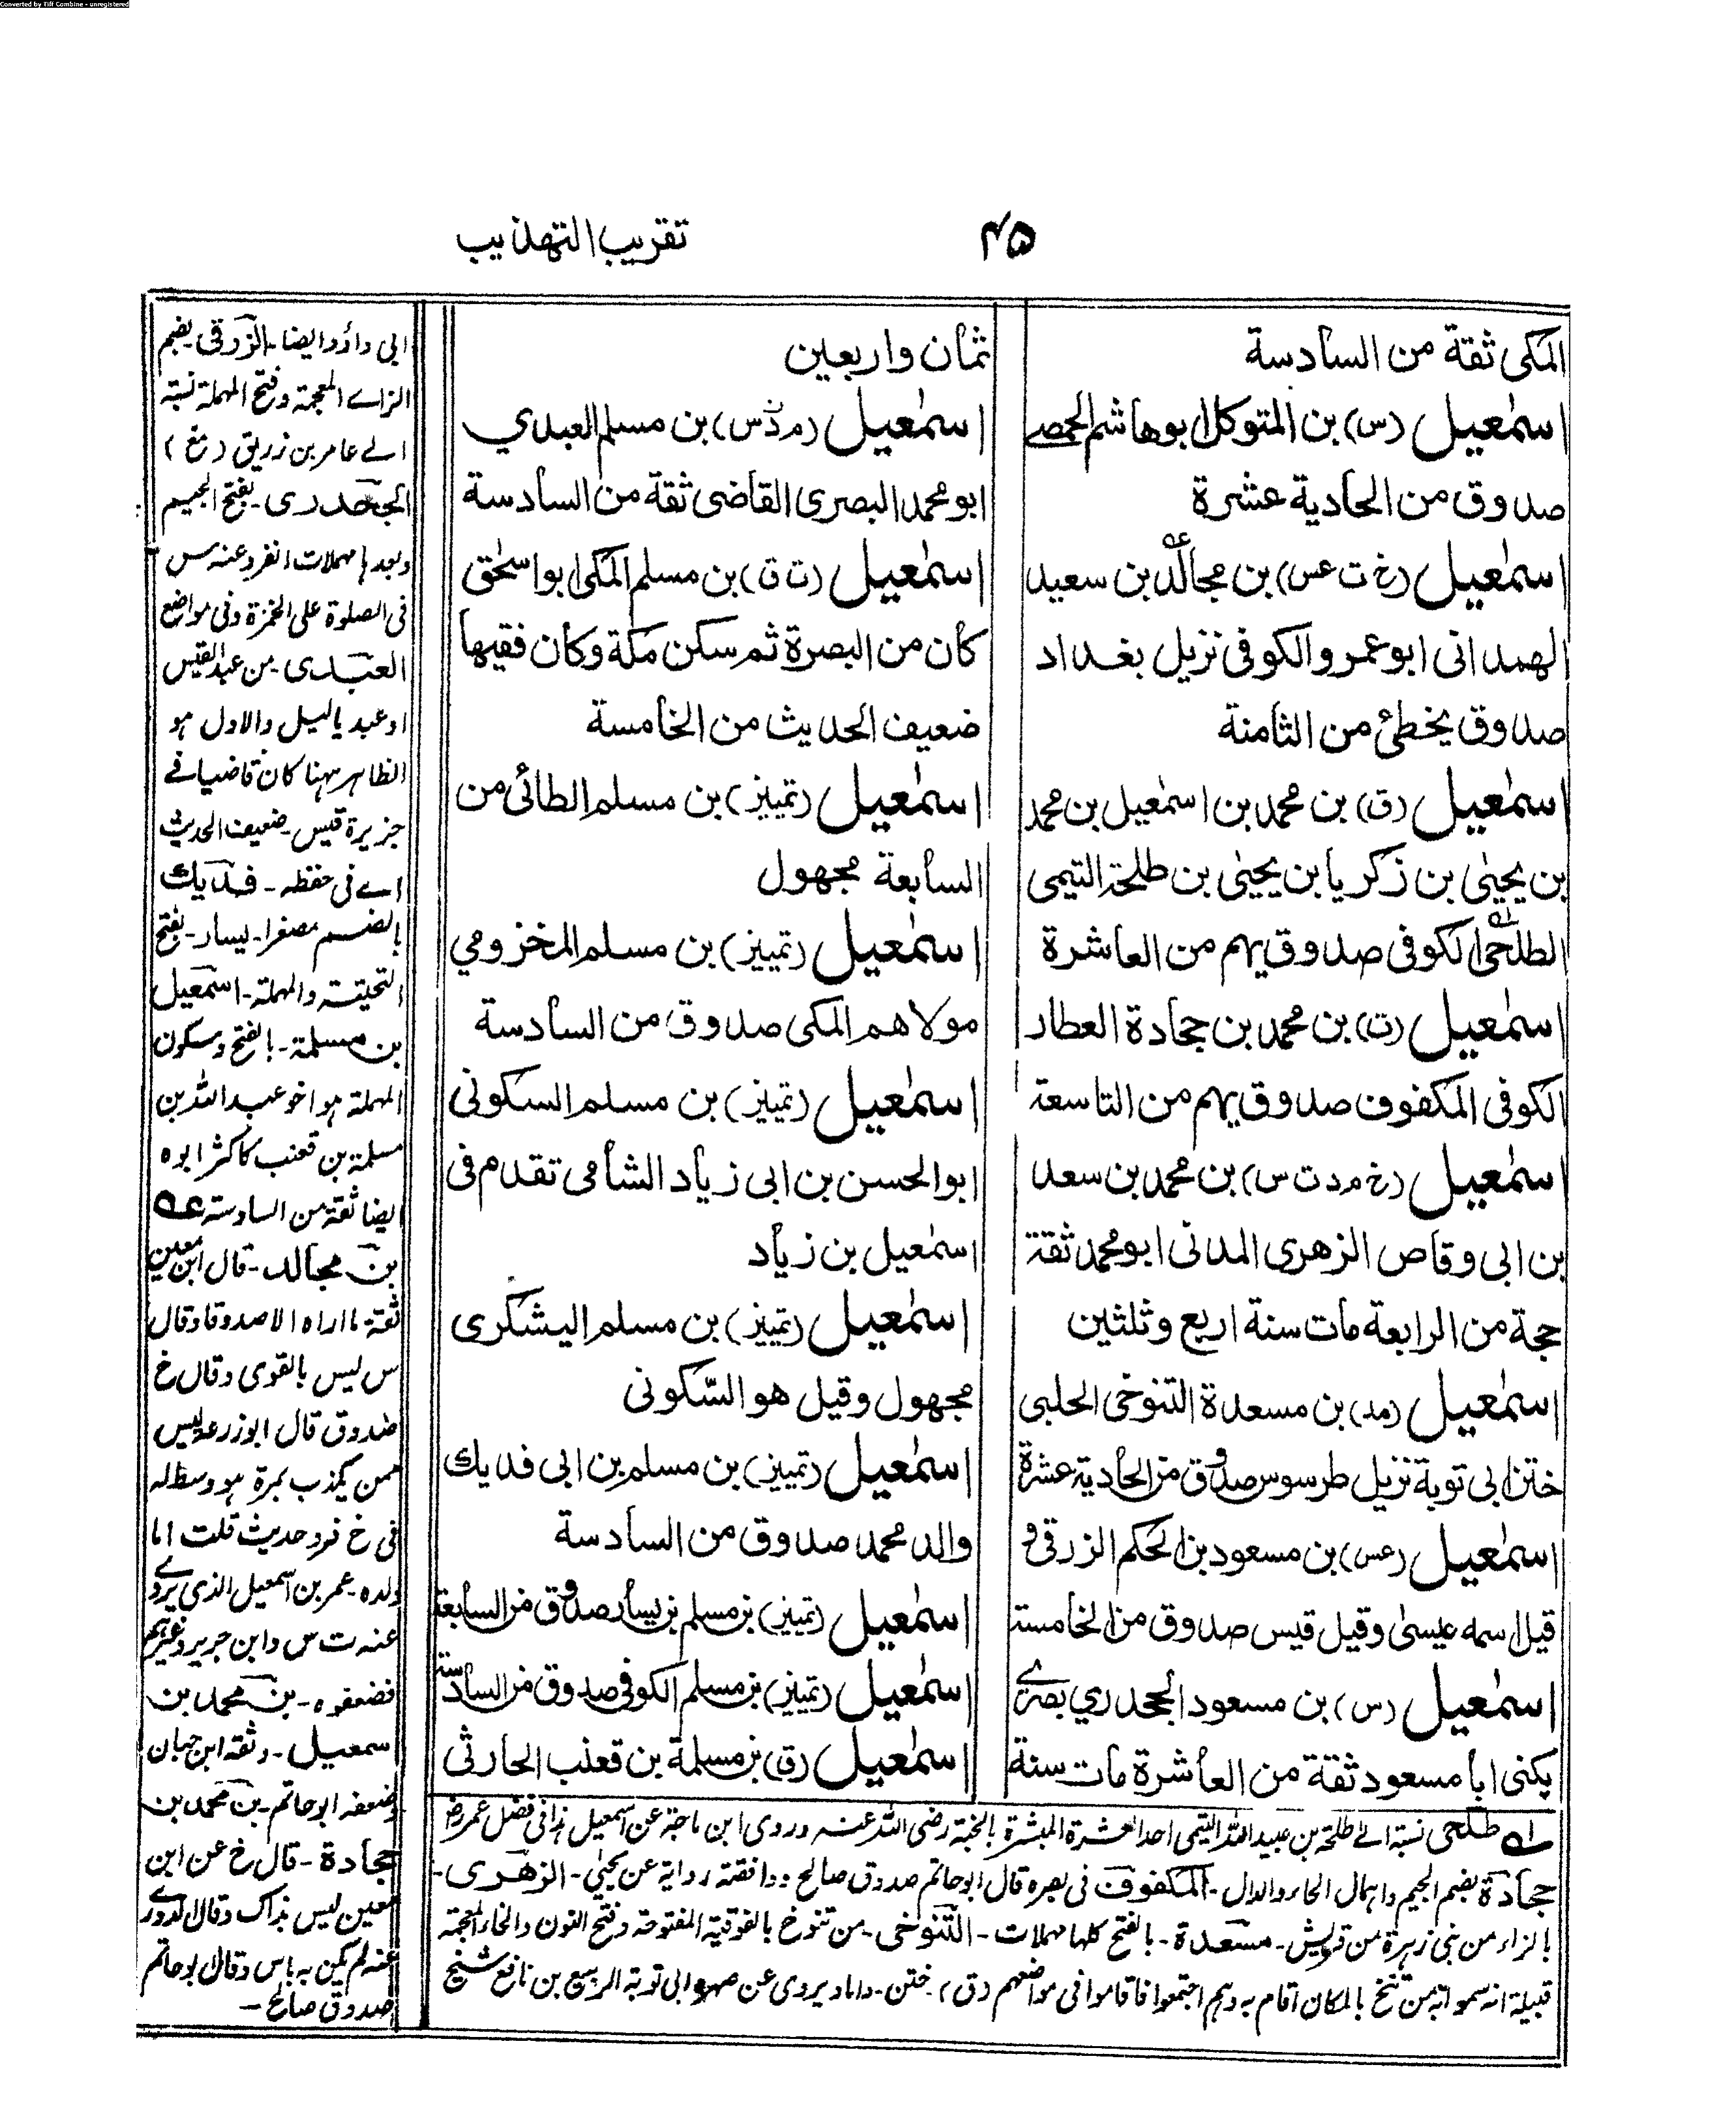 Converted by Tiff Combine - unregistered
۴۵
تقريب التهذيب
المكى ثقة من السادسة
اسمٰعيل (س) بن المتوكل ابو هاشم الحمصے
صدوق من الحادية عشرة
اسمٰعيل (خ ت عس) بن مجالد بن سعيد
الهمدانى ابو عمرو الكوفى نزيل بغداد
صدوق يخطئ من الثامنة
اسمٰعيل (ق) بن محمد بن اسمٰعيل بن محمد
بن يحيٰى بن زكريا بن يحيٰى بن طلحة التيمى
الطلحى الكوفى صدوق يهم من العاشرة
اسمٰعيل (ت) بن محمد بن جحادة العطار
الكوفى المكفوف صدوق يهم من التاسعة
اسمٰعيل (خ م د ت س) بن محمد بن سعد
بن ابى وقاص الزهرى المدنى ابو محمد ثقة
حجة من الرابعة مات سنة اربع وثلثين
اسمٰعيل (مد) بن مسعدة التنوخى الحلبى
ختن ابى توبة نزيل طرسوس صدوق من الحادية عشرة
اسمٰعيل (عس) بن مسعود بن الحكم الزرقى و
قيل اسمه عيسىٰ وقيل قيس صدوق من الخامسة
اسمٰعيل (س) بن مسعود الجحدري بصرے
يكنى ابا مسعود ثقة من العاشرة مات سنة
ثمان واربعين
اسمٰعيل (م د س) بن مسلم العبدي
ابو محمد البصرى القاضى ثقة من السادسة
اسمٰعيل (ت ق) بن مسلم المكى ابو اسحٰق
كان من البصرة ثم سكن مكة وكان فقيها
ضعيف الحديث من الخامسة
اسمٰعيل (تمييز) بن مسلم الطائى من
السابعة مجهول
اسمٰعيل (تمييز) بن مسلم المخزومي
مولاهم المكى صدوق من السادسة
اسمٰعيل (تمييز) بن مسلم السكونى
ابو الحسن بن ابى زياد الشامى تقدم فى
اسمٰعيل بن زياد
اسمٰعيل (تمييز) بن مسلم اليشكرى
مجهول وقيل هو السّكونى
اسمٰعيل (تمييز) بن مسلم بن ابى فديك
والد محمد صدوق من السادسة
اسمٰعيل (تمييز) بن مسلم بن يسار صدوق من السابعة
اسمٰعيل (تمييز) بن مسلم الكوفى صدوق من السادسة
اسمٰعيل (ق) بن مسلمة بن قعنب الحارثى
ابى داؤد ايضا - الزرقى - بضم
الزاے المعجمة وفتح المهملة نسبة
الے عامر بن زريق (مغ)
الجحدرى - بفتح الجيم
وبعدها مهملات انفرد عنه س
فى الصلوة على الخمرة وفى مواضع
العبدى - من عبد القيس
او عبد ياليل والاول هو
الظاهر ههنا كان قاضيا فے
جزيرة قيس - ضعيف الحديث
اے فى حفظه - فديك
بالضم مصغرا - يسار - بفتح
التحتية والمهملة - اسمٰعيل
بن مسلمة - بالفتح وسكون
المهملة هو اخو عبد الله بن
مسلمة بن قعنب كاكثر ابوه
ايضا ثقة من السادسة عه
بن مجالد - قال ابن معين
ثقة ما اراه الا صدوقا وقال
س ليس بالقوى وقال خ
صدوق قال ابو زرعة ليس
ممن يكذب بمرة هو وسط له
فى خ فرد حديث قلت اما
ولده - عمر بن اسمعيل الذى يروے
عنه ت س وابن جرير وغيرهم
فضعفوه - بن محمد بن
اسمعيل - وثقه ابن حبان
وضعفه ابو حاتم - بن محمد بن
جحادة - قال خ عن ابن
معين ليس بذاك وقال الدورے
عنه لم يكن به باس وقال ابو حاتم
صدوق صالح -
طلحى نسبة الے طلحة بن عبيد الله التيمى احد العشرة المبشرة بالجنة رضى الله عنه وروى ابن ماجة عن اسمعيل هذا فى فضل عمر رض
جحادة بضم الجيم واهمال الحاء والدال - المكفوف فى بصره قال ابو حاتم صدوق صالح ووافقته رواية عن يحيٰى - الزهرى -
بالزاء من بنى زهرة من قريش - مسعدة - بالفتح كلها مهملات - التنوخى - من تنوخ بالفوقية المفتوحة وفتح النون والخاء المعجمة
قبيلة انه سموا به من تنخ بالمكان اقام به وهم اجتمعوا فاقاموا فى مواضعهم (ق)، ختن - داماد يروى عن صهره ابى توبة الربيع بن نافع شيخ